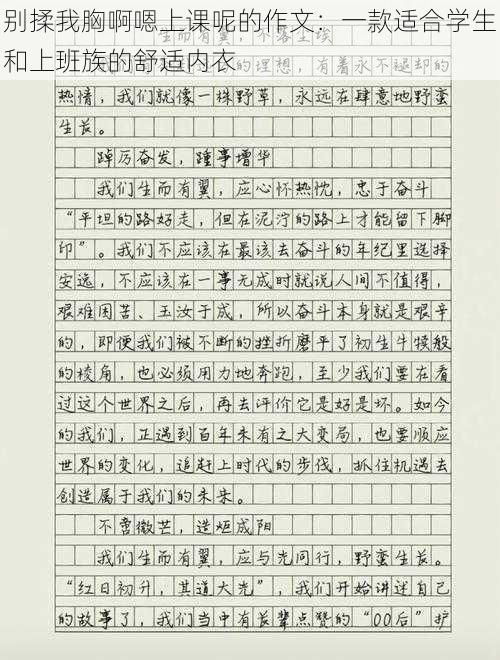 别揉我胸啊嗯上课呢的作文：一款适合学生
和上班族的舒适内衣
生而有翼，不落尘埃
的理想，有着永不褪却的
热情，我们就像一株野草，永远在肆意地野蛮
生长。
踔厉奋发，踵事增华
我们生而有翼，应心怀热忱，忠于奋斗
“平坦的路好走，但在泥泞的路上才能留下脚
印”。我们不应该在最该去奋斗的年纪里选择
安逸，不应该在一事无成时就说人间不值得，
艰难困苦、玉汝于成，所以奋斗本身就是艰辛
的，即便我们被不断的挫折磨平了初生牛犊般
的棱角，也必须用力地奔跑，至少我们要在看
过这个世界之后，再去评价它是好是坏。如今
的我们，正遇到百年未有之大变局，也要顺应
世界的变化，追赶上时代的步伐，抓住机遇去
创造属于我们的未来。
不啻微芒，造炬成阳
我们生而有翼，应与光同行，野蛮生长。
“红日初升，其道大光”，我们开始讲述自己
的故事了，我们当中有长辈点赞的“00后”护